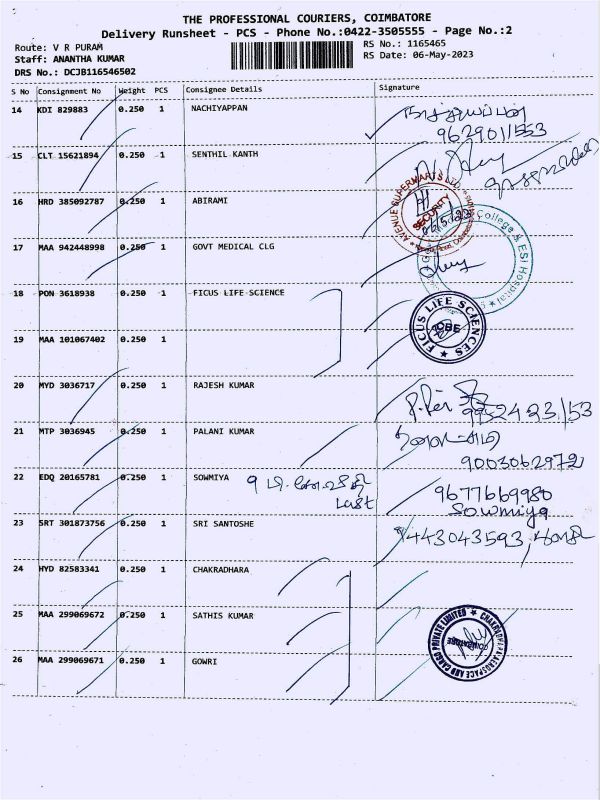 THE PROFESSIONAL COURIERS, COIMBATORE
Delivery Runsheet - PCS - Phone No.:0422-3505555 - Page No.:2
Route: V R PURAM
RS No.: 1165465
Staff: ANANTHA KUMAR
RS Date: 06-May-2023
DRS No.: DCJB116546502
S No Consignment No Weight PCS Consignee Details Signature
14 KDI 829883 0.250 1 NACHIYAPPAN
9629011553
15 CLT 15621894 0.250 1 SENTHIL KANTH
16 HRD 385092787 0.250 1 ABIRAMI
AVENUE SUPERMARTS LTD.
SECURITY
17 MAA 942448998 0.250 1 GOVT MEDICAL CLG
College & ESI Hospital
18 PON 3618938 0.250 1 FICUS LIFE SCIENCE
FICUS LIFE SCIENCES
CBE
19 MAA 101067402 0.250 1
20 MYD 3036717 0.250 1 RAJESH KUMAR
21 MTP 3036945 0.250 1 PALANI KUMAR
9003062972
22 EDQ 20165781 0.250 1 SOWMIYA
Last
9677669980
Sowmiya
23 SRT 301873756 0.250 1 SRI SANTOSHE
9443043593
24 HYD 82583341 0.250 1 CHAKRADHARA
25 MAA 299069672 0.250 1 SATHIS KUMAR
CHAKRADHARA AEROSPACE AND CARGO PRIVATE LIMITED
COIMBATORE
26 MAA 299069671 0.250 1 GOWRI